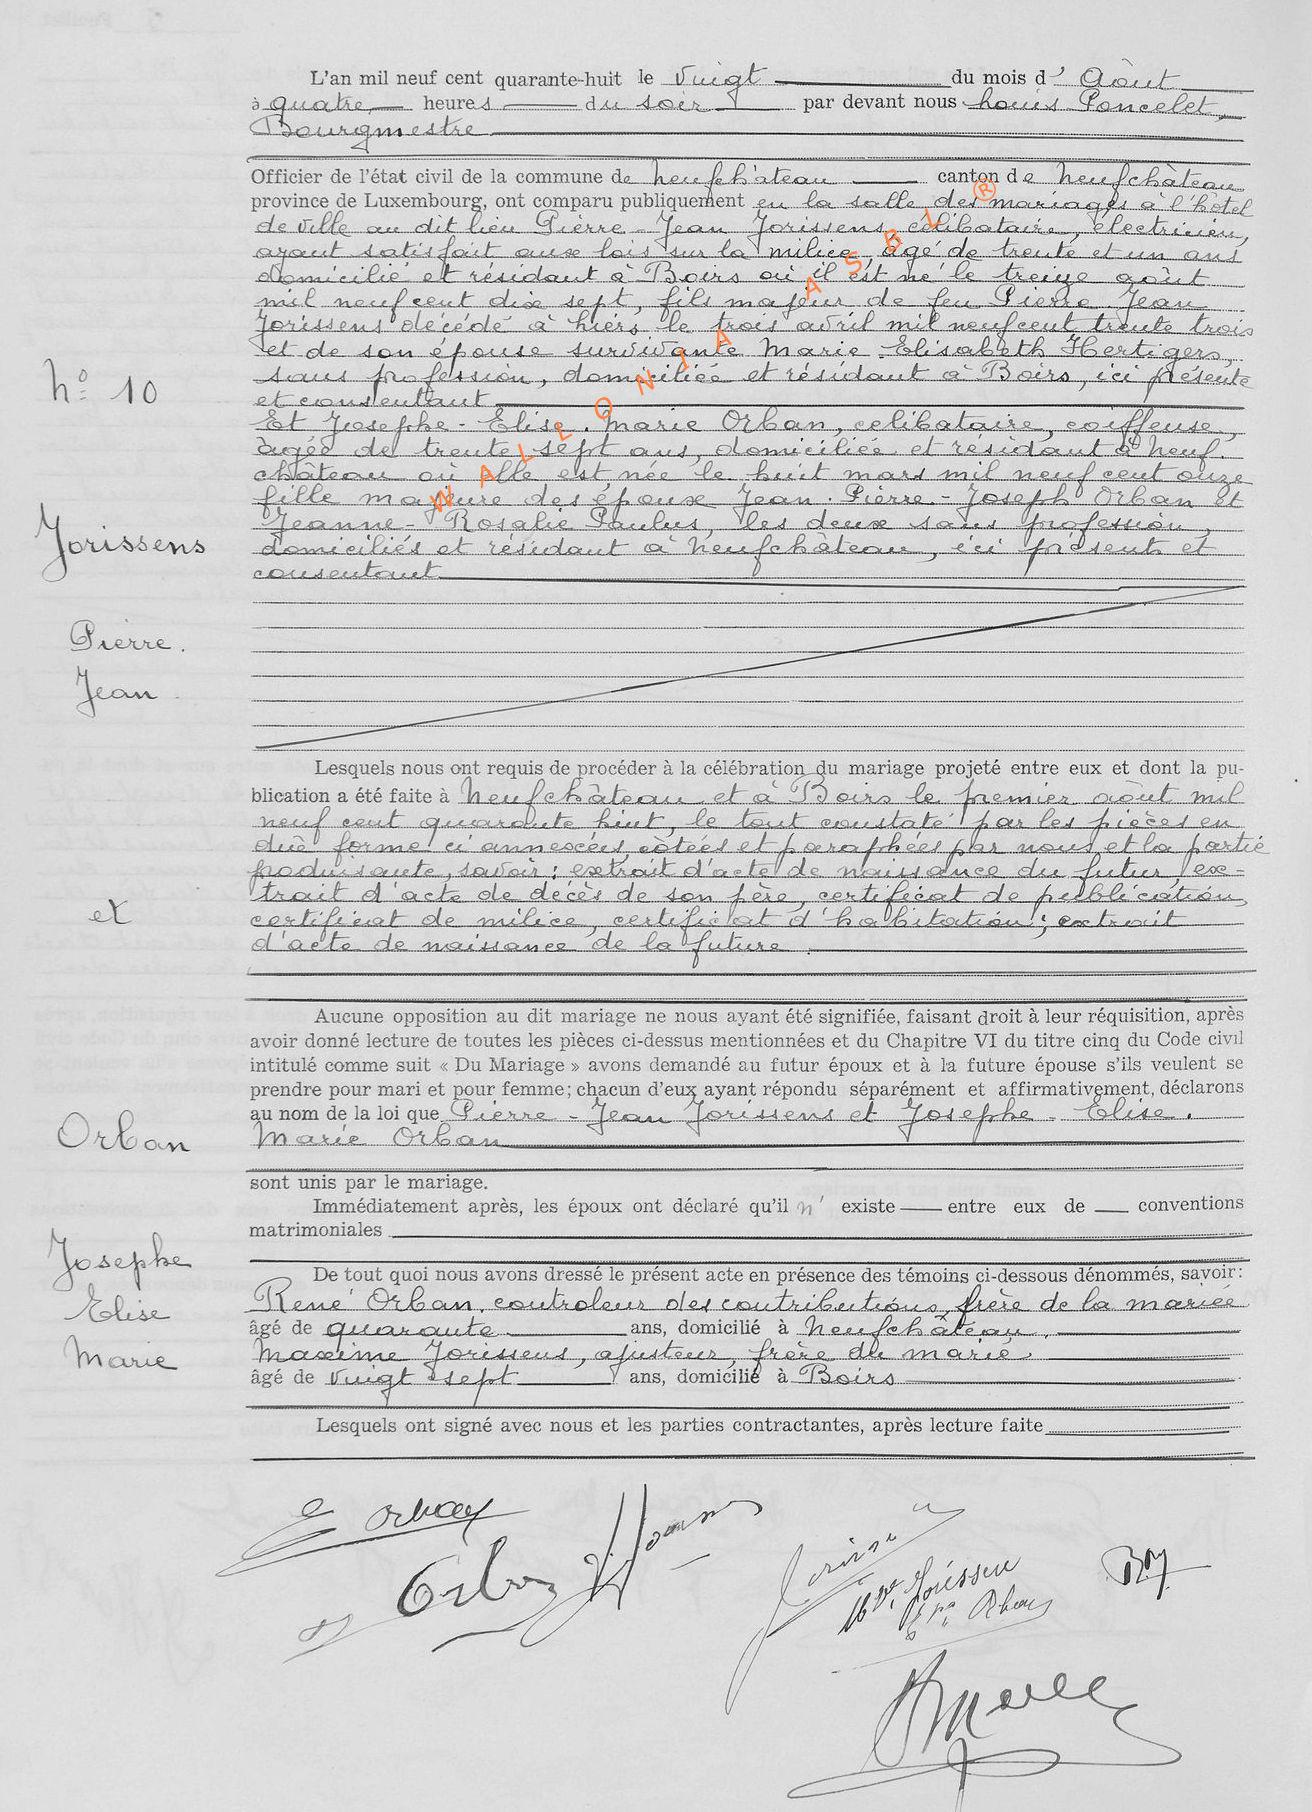 L'an mil neuf cent quarante-huit le vingt du mois d' Août
à quatre heures du soir par devant nous Louis Poncelet,
Bourgmestre
Officier de l'état civil de la commune de Neufchâteau canton de Neufchâteau
province de Luxembourg, ont comparu publiquement en la salle des mariages à l'hôtel
de ville au dit lieu Pierre-Jean Jorissens, célibataire, électricien,
ayant satisfait aux lois sur la milice, âgé de trente et un ans
domicilié et résidant à Boirs où il est né le treize août
mil neuf cent dix sept, fils majeur de feu Pierre Jean
Jorissens décédé à hiers le trois avril mil neuf cent trente trois
et de son épouse survivante Marie Elisabeth Hertigers,
N° 10
sans profession, domiciliée et résidant à Boirs, ici présente
et consentant
Et Josephe-Elise-Marie Orban, celibataire, coiffeuse,
âgée de trente sept ans, domiciliée et résidant à Neuf-
château où elle est née le huit mars mil neuf cent onze
fille majeure des époux Jean-Pierre-Joseph Orban et
Jeanne-Rosalie Paulus, les deux sans profession,
Jorissens
domiciliés et résidant à Neufchâteau, ici présents et
consentant
Pierre.
Jean
Lesquels nous ont requis de procéder à la célébration du mariage projeté entre eux et dont la pu-
blication a été faite à Neufchâteau et à Boirs le premier août mil
neuf cent quarante huit, le tout constaté par les pièces en
due forme ci annexées, cotées et paraphées par nous et la partie
produisante, savoir: extrait d'acte de naissance du futur, ex-
trait d'acte de décès de son père, certificat de publication,
et
certificat de milice, certificat d'habitation; extrait
d'acte de naissance de la future.
Aucune opposition au dit mariage ne nous ayant été signifiée, faisant droit à leur réquisition, après
avoir donné lecture de toutes les pièces ci-dessus mentionnées et du Chapitre VI du titre cinq du Code civil
intitulé comme suit « Du Mariage » avons demandé au futur époux et à la future épouse s'ils veulent se
prendre pour mari et pour femme; chacun d'eux ayant répondu séparément et affirmativement, déclarons
au nom de la loi que Pierre-Jean Jorissens et Josephe-Elise-
Orban
Marie Orban
sont unis par le mariage.
Immédiatement après, les époux ont déclaré qu'il n' existe entre eux de conventions
matrimoniales
Josephe
Elise
Marie
De tout quoi nous avons dressé le présent acte en présence des témoins ci-dessous dénommés, savoir:
René Orban, controleur des contributions, frère de la mariée
âgé de quarante ans, domicilié à Neufchâteau.
Maxime Jorissens, ajusteur, frère du marié.
âgé de vingt sept ans, domicilié à Boirs
Lesquels ont signé avec nous et les parties contractantes, après lecture faite
E Orban
Orban
WALLONIA ASBL ®